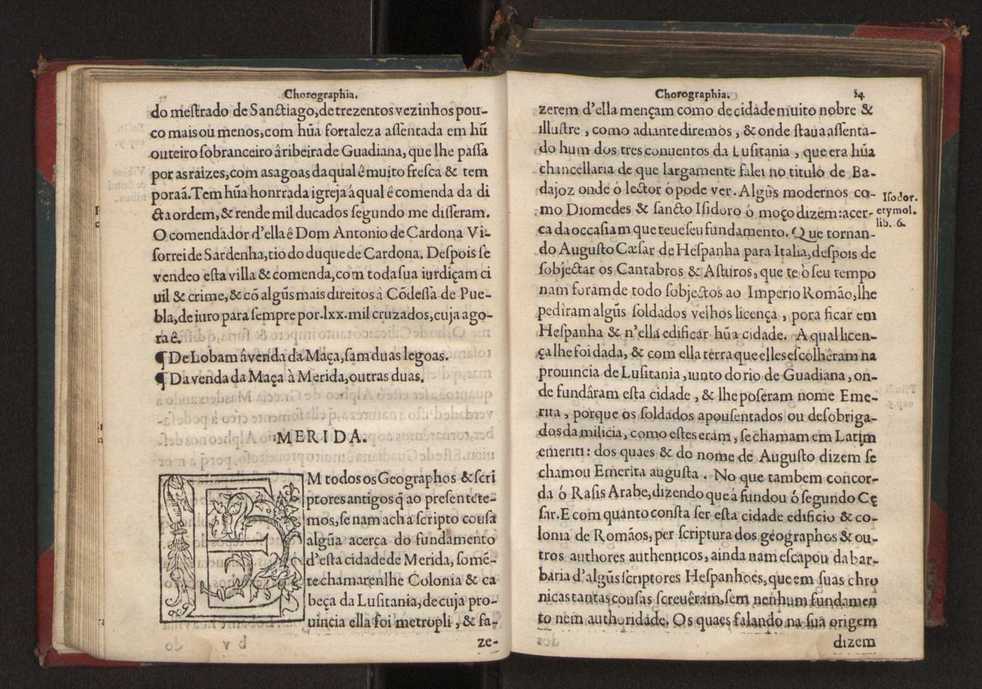 Chorographia.
do mestrado de Sanctiago, de trezentos vezinhos pou-
co mais ou menos, com hũa fortaleza assentada em hũ
outeiro sobranceiro â ribeira de Guadiana, que lhe passa
por as raizes, com as agoas da qual ê muito fresca & tem
poraã. Tem hũa honrada igreja à qual ê comenda da di
cta ordem, & rende mil ducados segundo me disseram.
O comendador d'ella ê Dom Antonio de Cardona Vi-
sorrei de Sardenha, tio do duque de Cardona. Despois se
vendeo esta villa & comenda, com toda sua iurdiçam ci
uil & crime, & cõ algũs mais direitos à Cõdessa de Pue-
bla, de iuro para sempre por .lxx. mil cruzados, cuja ago-
ra ê.
¶ De Lobam â venda da Maça, sam duas legoas.
¶ Da venda da Maça à Merida, outras duas.
MERIDA.
EM todos os Geographos & scri
ptores antigos q̃ ao presente te-
mos, se nam acha scripto cousa
algũa acerca do fundamento
d'esta cidade de Merida, somẽ-
te chamarenlhe Colonia & ca
beça da Lusitania, de cuja pro-
uincia ella foi metropli, & fa-
ze-
Chorographia. 34
zerem d'ella mençam como de cidade muito nobre &
illustre, como adiante diremos, & onde staua assenta-
do hum dos tres conuentos da Lusitania, que era hũa
chancellaria de que largamente falei no titulo de Ba-
dajoz onde ò lector ò pode ver. Algũs modernos co-
mo Diomedes & sancto Isidoro ò moço dizem acer-
ca da occasiam que teue seu fundamento. Que tornan-
do Augusto Cæsar de Hespanha para Italia, despois de
sobjectar os Cantabros & Asturos, que te ò seu tempo
nam foram de todo sobjectos ao Imperio Romão, lhe
pediram algũs soldados velhos licença, pora ficar em
Hespanha & n'ella edificar hũa cidade. A qual licen-
ça lhe foi dada, & com ella terra que elles escolhêram na
prouincia de Lusitania, iunto do rio de Guadiana, on-
de fundâram esta cidade, & lhe poseram nome Eme-
rita, porque os soldados apousentados ou desobriga-
dos da milicia, como estes eram, se chamam em Latim
emeriti: dos quaes & do nome de Augusto dizem se
chamou Emerita augusta. No que tambem concor-
da ò Rasis Arabe, dizendo que â fundou ò segundo Cę
sar. E com quanto consta ser esta cidade edificio & co-
lonia de Romãos, per scriptura dos geographos & ou-
tros authores authenticos, ainda nam escapou da bar-
baria d'algũs scriptores Hespanhoes, que em suas chro
nicas tantas cousas screuêram, sem nenhum fundamen
to nem authoridade. Os quaes falando na sua origem
dizem
Isodor.
etymol.
lib. 6.